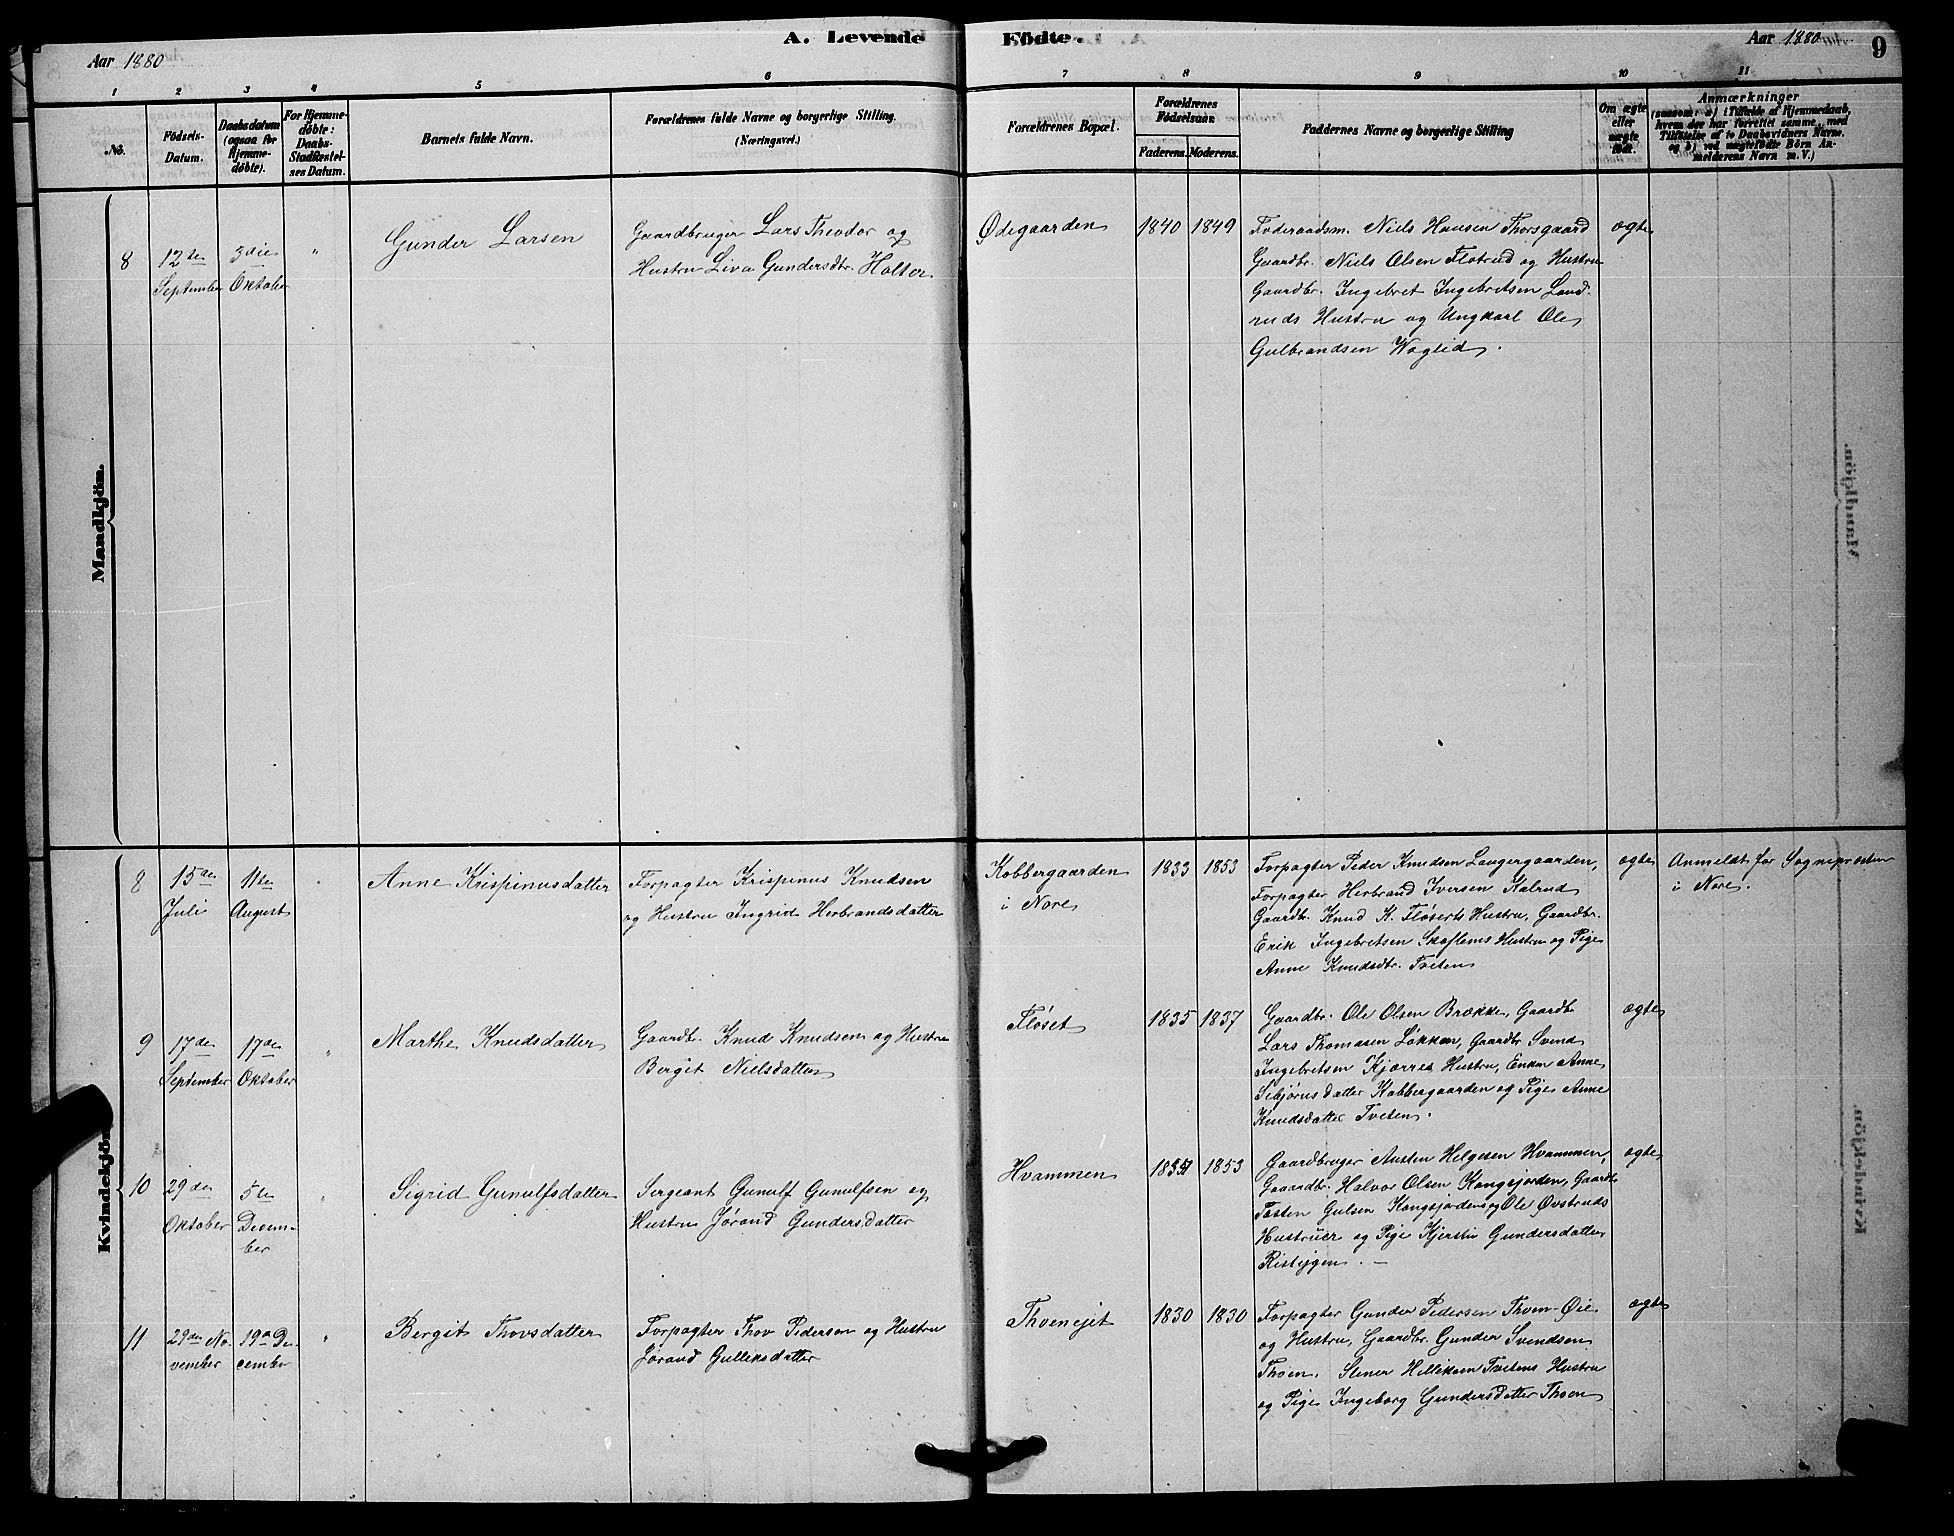 Aar 1880
A. Levende Födte.
Aar 1880
9
1 2 3 4 5 6 7 8 9 10 11
No.
Födsels-Datum.
Daabsdatum (ogsaa for Hjemme-döbte).
For Hjemme-döbte: Daabs-Stadfæstel-ses Datum.
Barnets fulde Navn.
Forældrenes fulde Navne og borgerlige Stilling.
(Næringsvei.)
Forældrenes Bopæl.
Forældrenes Födselsaar
Faderens. Moderens.
Faddernes Navne og borgerlige Stilling
Om ægte eller uægte födt.
Anmærkninger
(saasom: a) i Tilfælde af Hjemmedaab,
hvem der har forrettet samme, med
Tilföielse af to Daabsvidners Navne.
og b) ved uægtefödte Börn An-
melderens Navn m. V.)
Mandkjön.
8
12te September
3die Oktober
"
Gunder Larsen
Gaardbruger Lars Theodor og
Hustru Liva Gundersdtr. Holter
Ødegaarden
1840 1849
Föderaadsm. Niels Hansen Thorsgaard
Gaardbr. Niels Olsen Flotrud og Hustru
Gaardbr. Ingebret Ingebretsen Land-
ruds Hustru og Ungkarl Ole
Gulbrandsen Woglid.
ægte
Kvindekjön.
8
15de Juli
11te August
"
Anne Krispinusdatter
Forpagter Krispinus Knudsen
og Hustru Ingrid Herbrandsdatter
Kobbergaarden
i Nore
1833 1853
Forpagter Peder Knudsen Langergaarden,
Forpagter Herbrand Iversen Kalrud
Gaardb. Knud K. Fløsets Hustru, Gaardbr.
Erik Ingebretsen Skoflems Hustru og Pige
Anne Knudsdtr. Tveten
ægte
Anmeldt for Sognepresten
i Nore.
9
17de September
17de Oktober
"
Marthe Knudsdatter
Gaardb. Knud Knudsen og Hustru
Bergit Nielsdatter
Fløset
1835 1837
Gaardbr. Ole Olsen Brække, Gaardb.
Lars Thomasen Løkken, Gaardbr. Svend
Ingebretsen Kjørres Hustru, Enken Anne
Sebjørnsdatter Kobbergaarden og Pige Anne
Knudsdatter Tveten.
ægte
10
29de Oktober
5te Decem-
ber
"
Sigrid Gunulfsdatter
Sergeant Gunulf Gunulfsen og
Hustru Jørand Gundersdatter
Hvammen
1853
Gaardbruger Austen Helgesen Hvammen,
Gaardbr. Halvor Olsen Kongsjorden, Gaardb.
Tosten Gulsen Kongsjordens og Ole Øvstruds
Hustruer og Pige Kjersti Gundersdatter
Risteigen. —
ægte
11
29de No-
vember
19de De-
cember
"
Bergit Thovsdatter
Forpagter Thov Pederson og Hustru
Jørand Gulliksdatter
Thoeneiet
1830 1830
Forpagter Gunder Pedersen Thoen-Øie
og Hustru, Gaardbr. Gunder Svendsen
Thoen, Stener Helliksen Tvetens Hustru
og Pige Ingeborg Gundersdatter Thoen
ægte